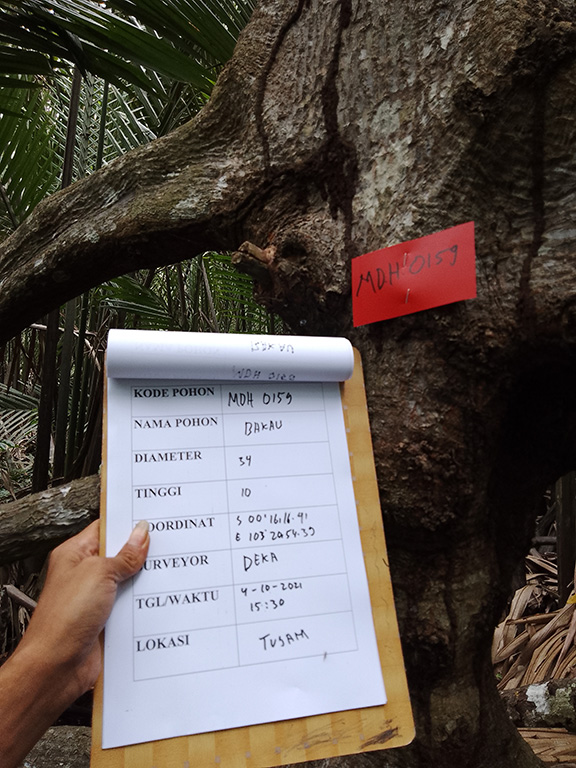 MDH 0159
KODE POHON MDH 0159
NAMA POHON BAKAU
DIAMETER 34
TINGGI 10
OORDINAT S 00°16'16.41
E 103°20'54.39
URVEYOR DEKA
TGL/WAKTU 4-10-2021
15:30
LOKASI TUSAM